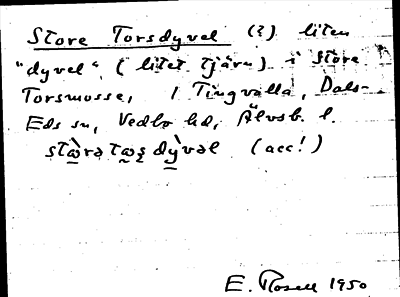 Store Torsdyvel (?) liten
"dyvel" (litet tjärn) i Store
Torsmosse, / Tingvalla, Dals-
Eds sn, Vedbo hd, Älvsb. l.
(acc!)
E. Rosell 1950